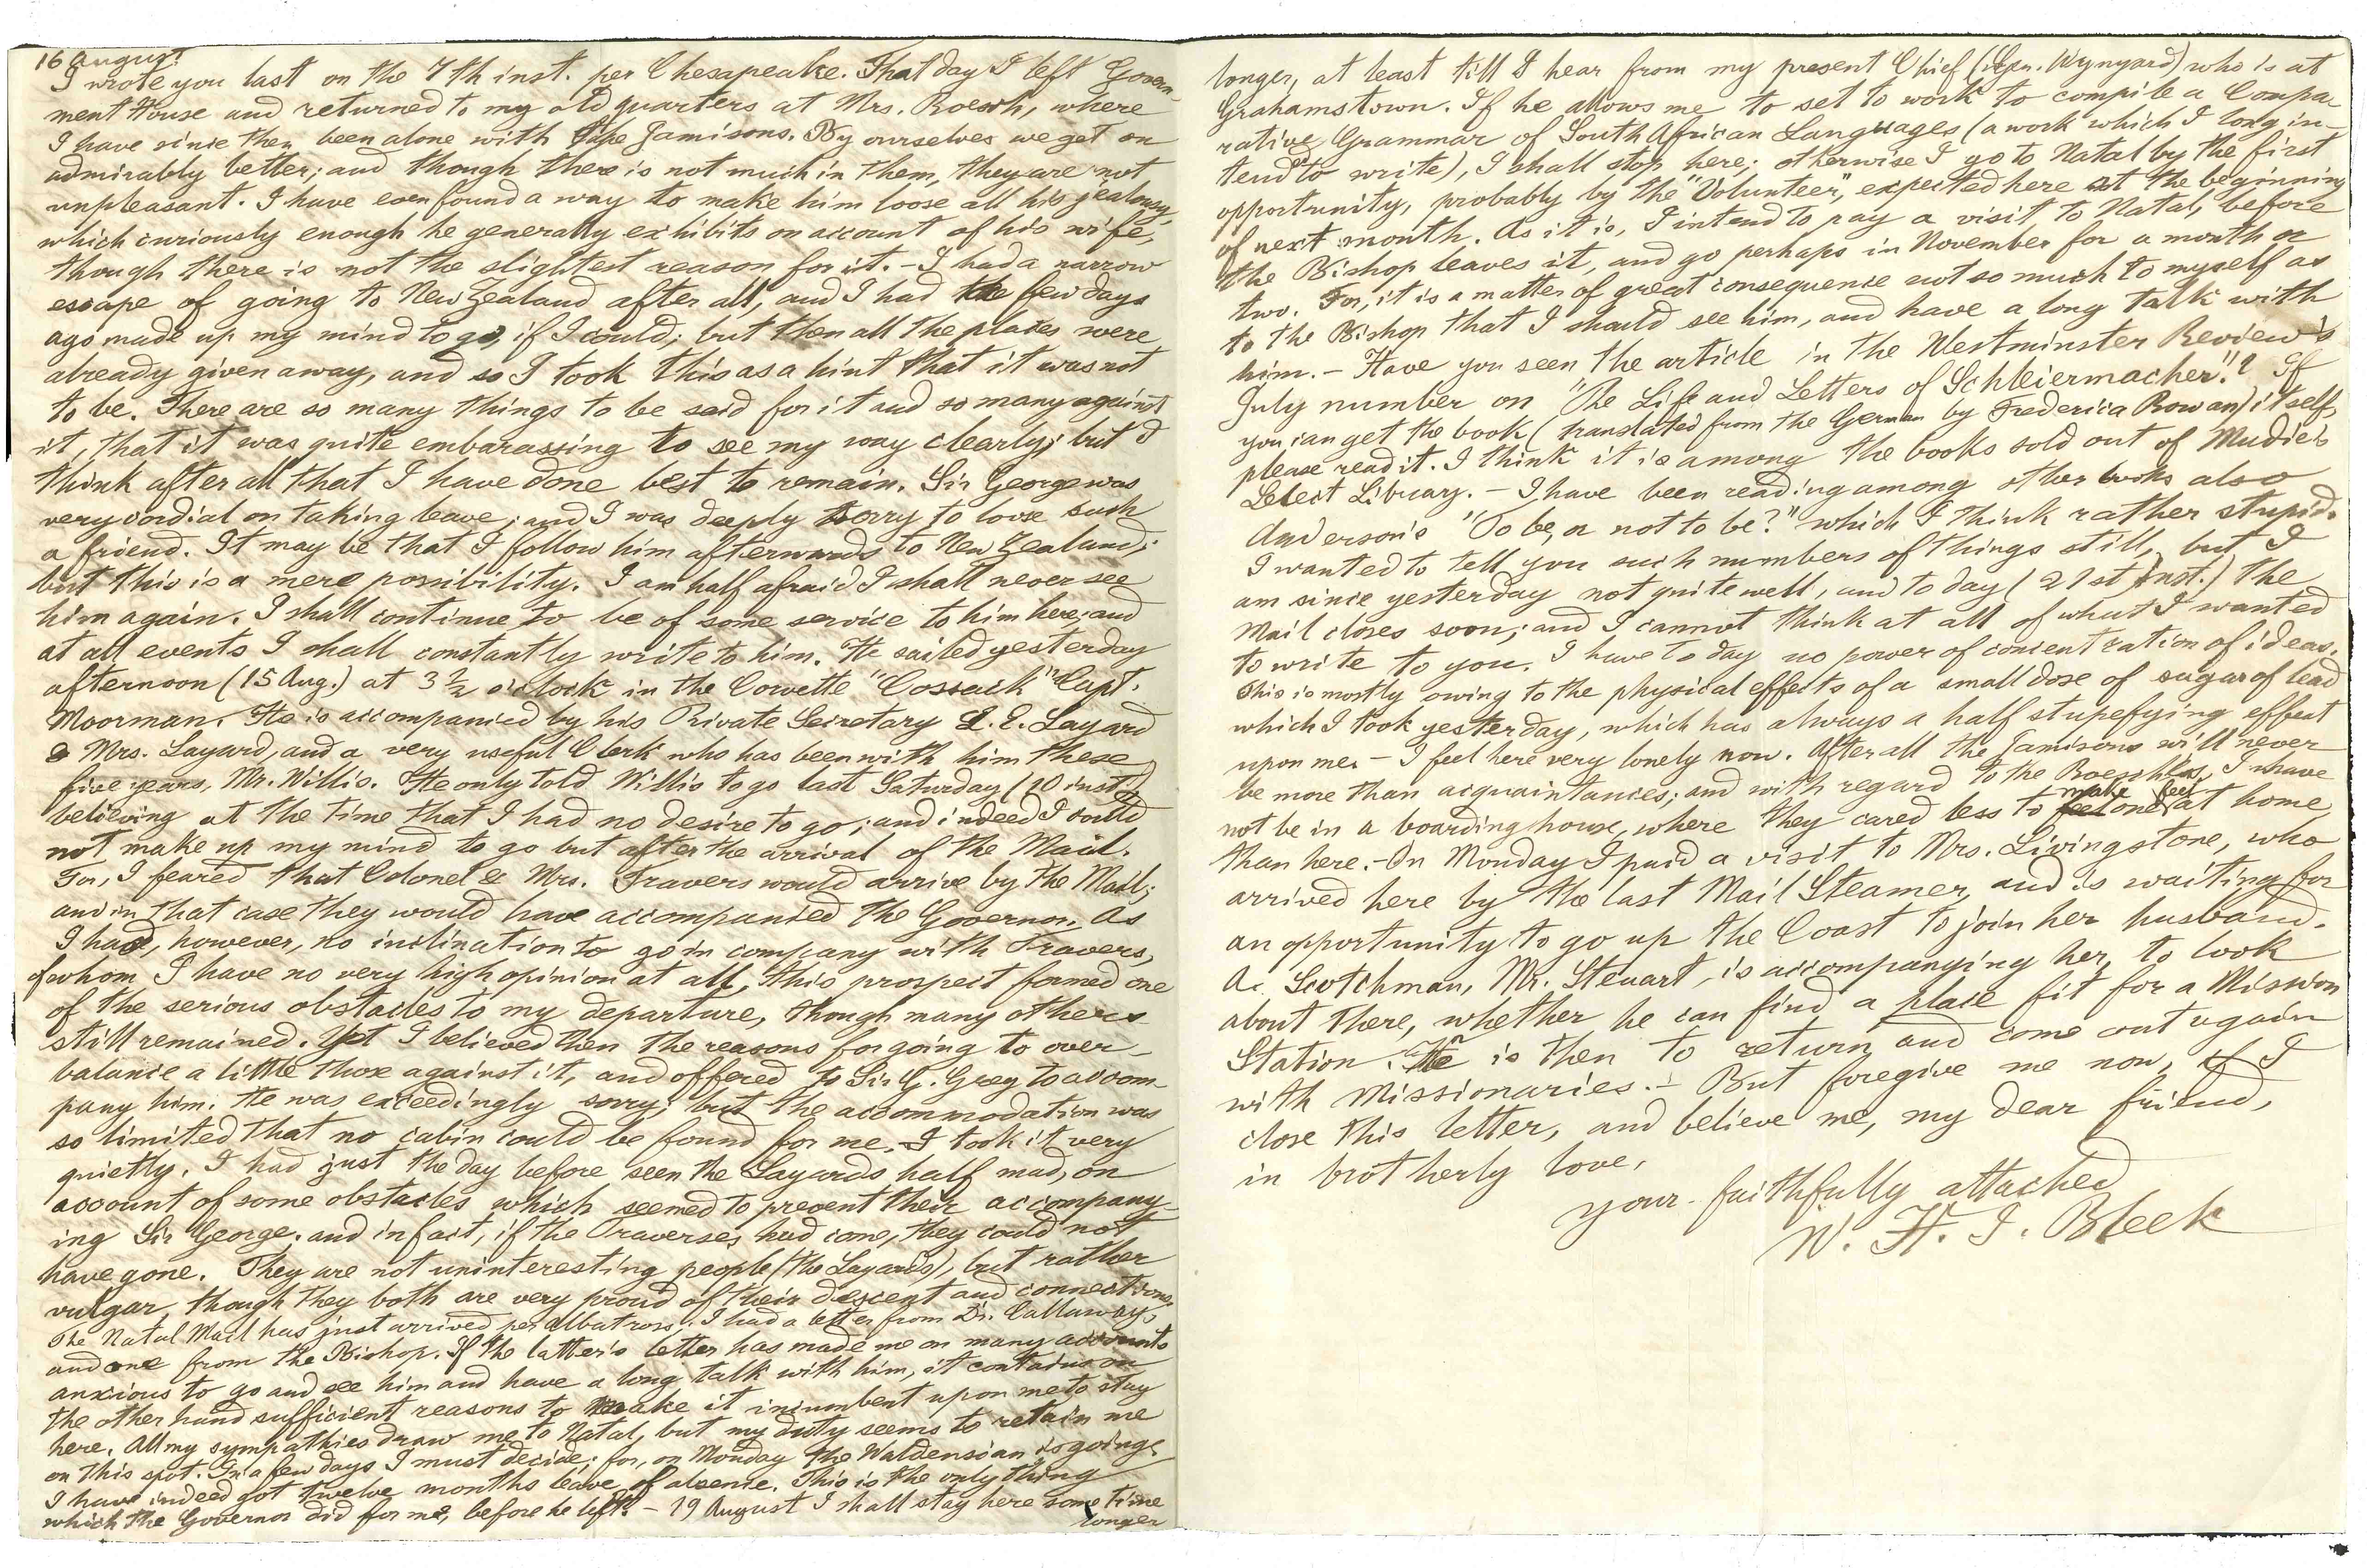 16 August
I wrote you last on the 7th inst. per Chesapeake. That day I left Govern-
ment House and returned to my old quarters at Mrs. Roesch, where
I have since then been alone with the Jamisons. By ourselves we get on
admirably better; and though there is not much in them, they are not
unpleasant. I have even found a way to make him loose all his jealousy,
which curiously enough he generally exhibits on account of his wife,
though there is not the slightest reason for it. – I had a narrow
escape of going to New Zealand after all, and I had the few days
ago made up my mind to go, if I could; but then all the places were
already given away, and so I took this as a hint that it was not
to be. There are so many things to be said for it and so many against
it, that it was quite embarassing to see my way clearly; but I
think after all that I have done best to remain. Sir George was
very cordial on taking leave; and I was deeply sorry to loose such
a friend. It may be that I follow him afterwards to New Zealand;
but this is a mere possibility. I am half afraid I shall never see
him again. I shall continue to be of some service to him here; and
at all events I shall constantly write to him. He sailed yesterday
afternoon (15 Aug.) at 3 1/2 o'clock in the Corvette "Cossack" Capt.
Moorman. He is accompanied by his Private Secretary E. L. Layard
& Mrs. Layard, and a very useful Clerk who has been with him these
five years, Mr. Willis. He only told Willis to go last Saturday (10 inst.)
believing at the time that I had no desire to go; and indeed I could
not make up my mind to go but after the arrival of the Mail.
For, I feared that Colonel & Mrs. Travers would arrive by the Mail;
and in that case they would have accompanied the Governor. As
I had, however, no inclination to go in company with Travers,
of whom I have no very high opinion at all, this prospect formed one
of the serious obstacles to my departure, though many others
still remained. Yet I believed then the reasons for going to over-
balance a little those against it, and offered to Sir G. Grey to accom-
pany him. He was exceedingly sorry; but the accommodation was
so limited that no cabin could be found for me. I took it very
quietly. I had just the day before seen the Layards half mad, on
account of some obstacles which seemed to prevent their accompany-
ing Sir George. and in fact, if the Traverses had come, they could not
have gone. They are not uninteresting people (the Layards), but rather
vulgar, though they both are very proud of their descent and connections.
The Natal Mail has just arrived per Albatross. I had a letter from Dr. Callaway,
and one from the Bishop. If the latter's letter has made me on many accounts
anxious to go and see him and have a long talk with him, it contains on
the other hand sufficient reasons to make it incumbent upon me to stay
here. All my sympathies draw me to Natal, but my duty seems to retain me
on this spot. In a few days I must decide; for, on Monday the Waldensian is going.
I have indeed got twelve months leave of absence. This is the only thing
which the Governor did for me, before he left. – 19 August I shall stay here some time
longer
longer, at least till I hear from my present Chief (Gen. Wynyard) who is at
Grahamstown. If he allows me to set to work to compile a Compa-
rative Grammar of South African Languages (a work which I long in-
tend to write), I shall stop here; otherwise I go to Natal by the first
opportunity, probably by the "Volunteer", expected here at the beginning
of next month. As it is, I intend to pay a visit to Natal, before
the Bishop leaves it, and go perhaps in November for a month or
two. For, it is a matter of great consequence not so much to myself as
to the Bishop that I should see him, and have a long talk with
him. – Have you seen the article in the Westminster Review's
July number on "The Life and Letters of Schleiermacher."? If
you can get the book (translated from the German by Frederica Rowan) itself,
please read it. I think it is among the books sold out of Mudie's
Select Library. – I have been reading among other books also
Anderson's "To be, or not to be?" which I think rather stupid.
I wanted to tell you such numbers of things still, but I
am since yesterday not quite well, and to day (21st inst.) the
Mail closes soon; and I cannot think at all of what I wanted
to write to you. I have to day no power of concentration of ideas.
This is mostly owing to the physical effects of a small dose of sugar of lead
which I took yesterday, which has always a half stupefying effect
upon me. – I feel here very lonely now. After all the Jamisons will never
be more than acquaintances; and with regard to the Roeschks, I whave
not be in a boarding house, where they cared less to make one feel at home,
than here. – On Monday I paid a visit to Mrs. Livingstone, who
arrived here by the last Mail Steamer, and is waiting for
an opportunity to go up the Coast to join her husband.
A. Scotchman, Mr. Steuart, is accompanying her, to look
about there, whether he can find a place fit for a Mission
Station. He is then to return and come out again
with Missionaries. – But foregive me now, if I
close this letter, and believe me, my dear friend,
in brotherly love,
your faithfully attached
W. H. I. Bleek